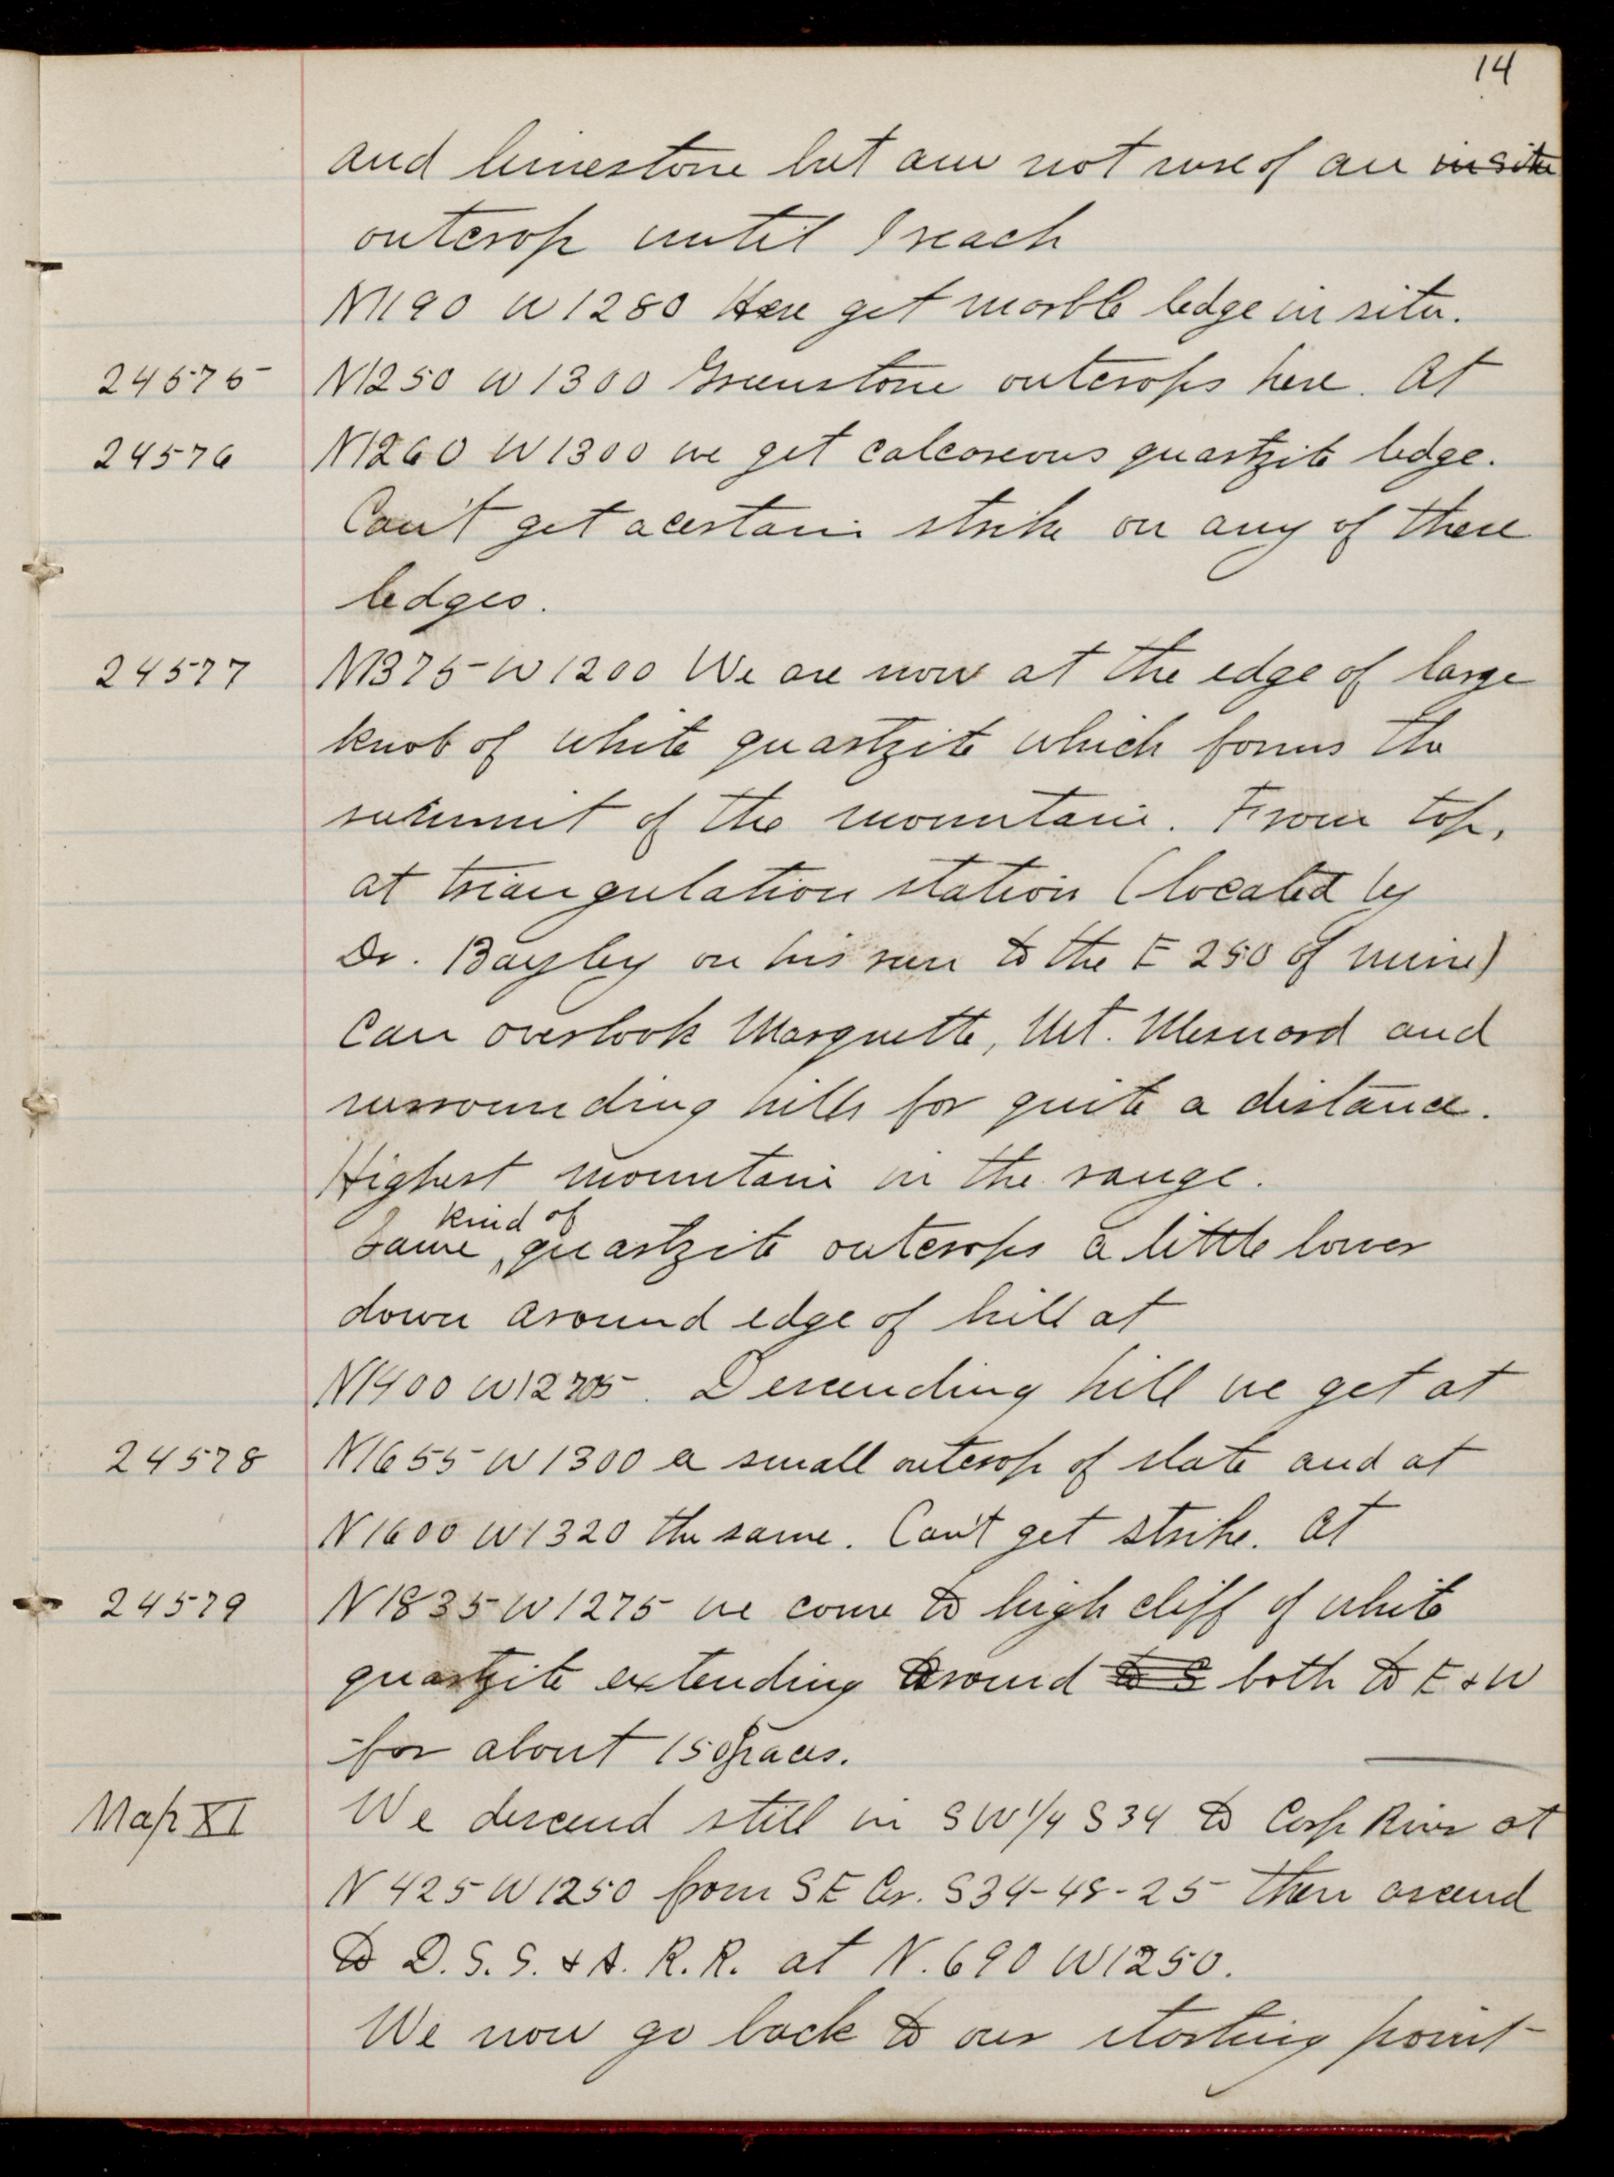 14
and limestone but am not sure of an in situ
outcrop until I reach
N1190 W1280 Here get marble ledge in situ.
24575 N1250 W1300 Greenstone outcrops here. At
24576 N1260 W1300 we get calcareous quartzite ledge.
Can't get a certain strike on any of these
ledges.
24577 N1375 W1200 We are now at the edge of large
knob of white quartzite which forms the
summit of the mountain. From top,
at triangulation station (located by
Dr. Bayley on his run to the E 250 of mine)
Can overlook Marquette, Mt. Mesnard and
surrounding hills for quite a distance.
Highest mountain in the range.
Same kind of quartzite outcrops a little lower
down around edge of hill at
N1400 W1275. Descending hill we get at
24578 N1655 W1300 a small outcrop of slate and at
N1600 W1320 the same. Can't get strike. At
24579 N1835 W1275 we come to high cliff of white
quartzite extending around to S both to E & W
for about 150 paces.
Map XI We descend still in SW1/4 S34 to Carp River at
N425 W1250 from SE Cor. S34-48-25 then ascend
to D. S. S. & A. R. R. at N. 690 W1250.
We now go back to our starting point